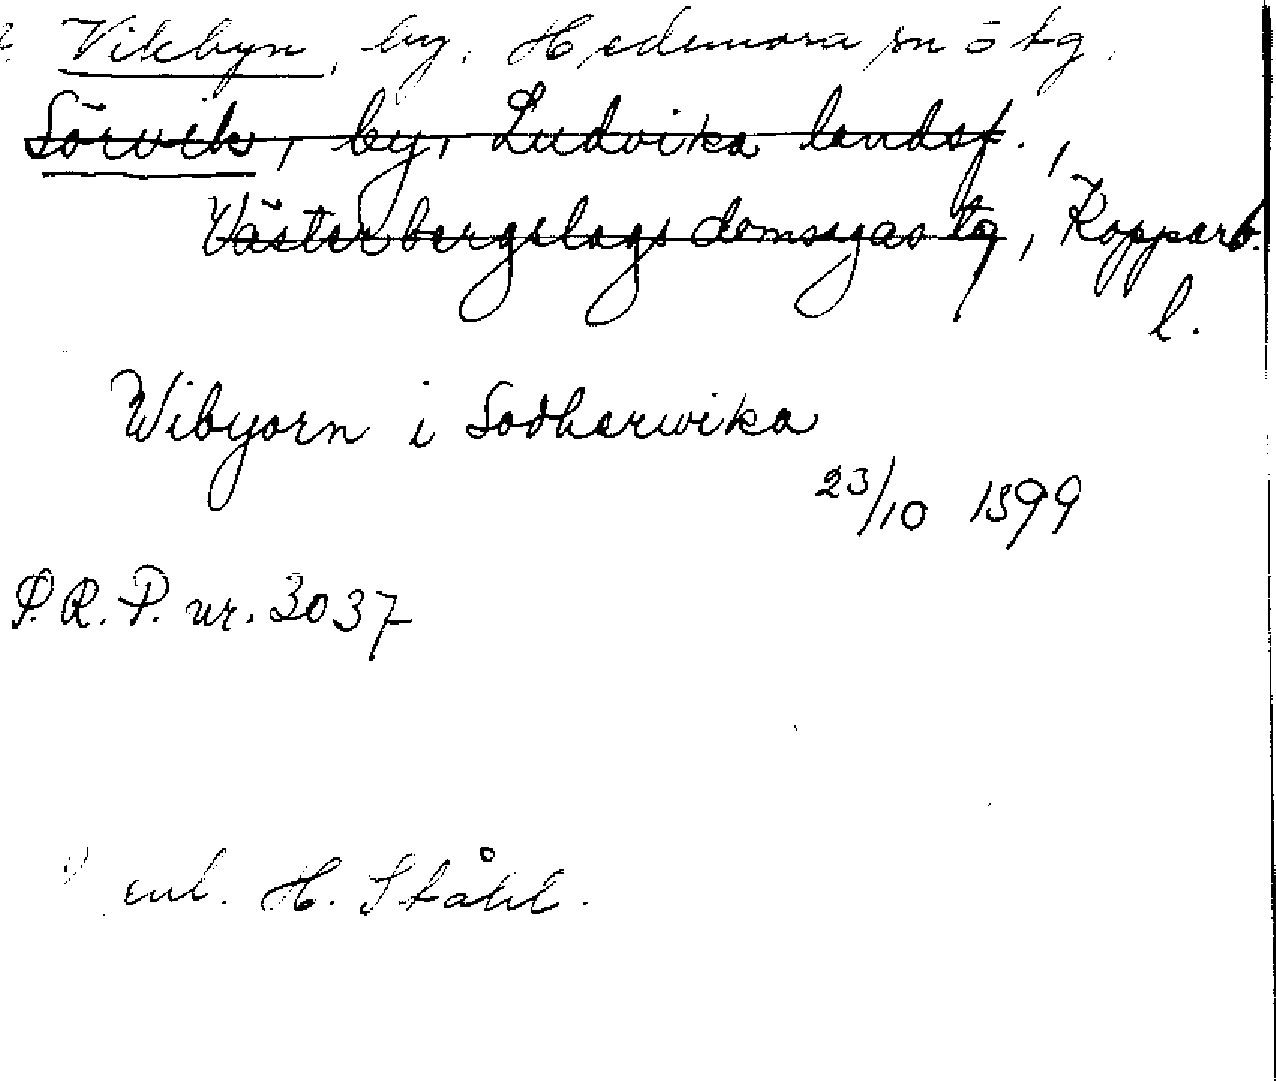 Vikbyn, by, Hedemora sn ö tg.
Sörvik, by, Ludvika landsf.,
Västerbergslags domsagas tg, Kopparb.
l.
Wibyorn i Sodherwika
23/10 1399
S.R.P. nr. 3037
1) enl. H. Ståhl.